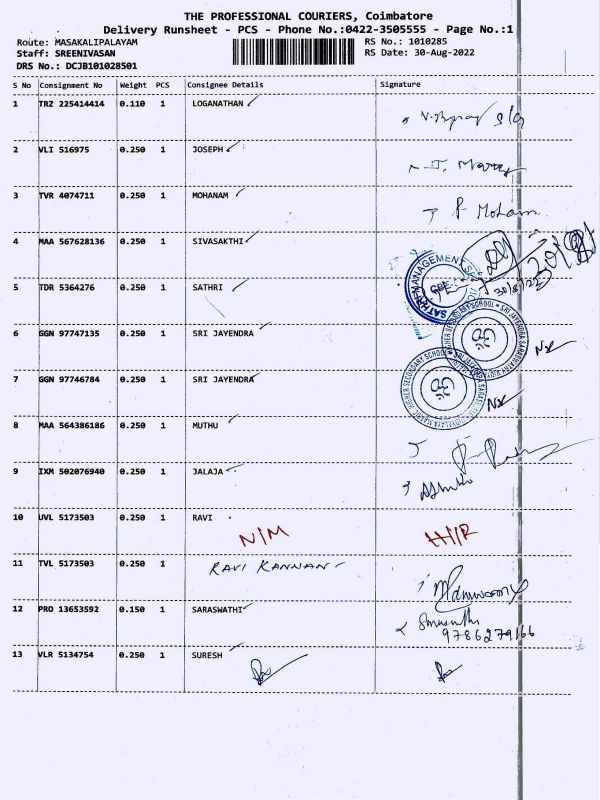 THE PROFESSIONAL COURIERS, Coimbatore
Delivery Runsheet - PCS - Phone No.:0422-3505555 - Page No.:1
Route: MASAKALIPALAYAM RS No.: 1010285
Staff: SREENIVASAN RS Date: 30-Aug-2022
DRS No.: DCJB101028501
S No Consignment No Weight PCS Consignee Details Signature
1 TRZ 225414414 0.110 1 LOGANATHAN
2 VLI 516975 0.250 1 JOSEPH
3 TVR 4074711 0.250 1 MOHANAM
P Moham
4 MAA 567628136 0.250 1 SIVASAKTHI
5 TDR 5364276 0.250 1 SATHRI
30/8/22
6 GGN 97747135 0.250 1 SRI JAYENDRA
7 GGN 97746784 0.250 1 SRI JAYENDRA
8 MAA 564386186 0.250 1 MUTHU
9 IXM 502076940 0.250 1 JALAJA
10 UVL 5173503 0.250 1 RAVI
N/M
11 TVL 5173503 0.250 1 RAVI KANNAN
12 PRO 13653592 0.150 1 SARASWATHI
9786279166
13 VLR 5134754 0.250 1 SURESH